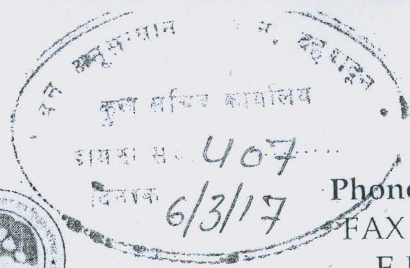 वन अनुसंधान देहरादून
कुल सचिव कार्यालय
डायरी सं.. 407.....
दिनांक 6/3/17
Phone
FAX